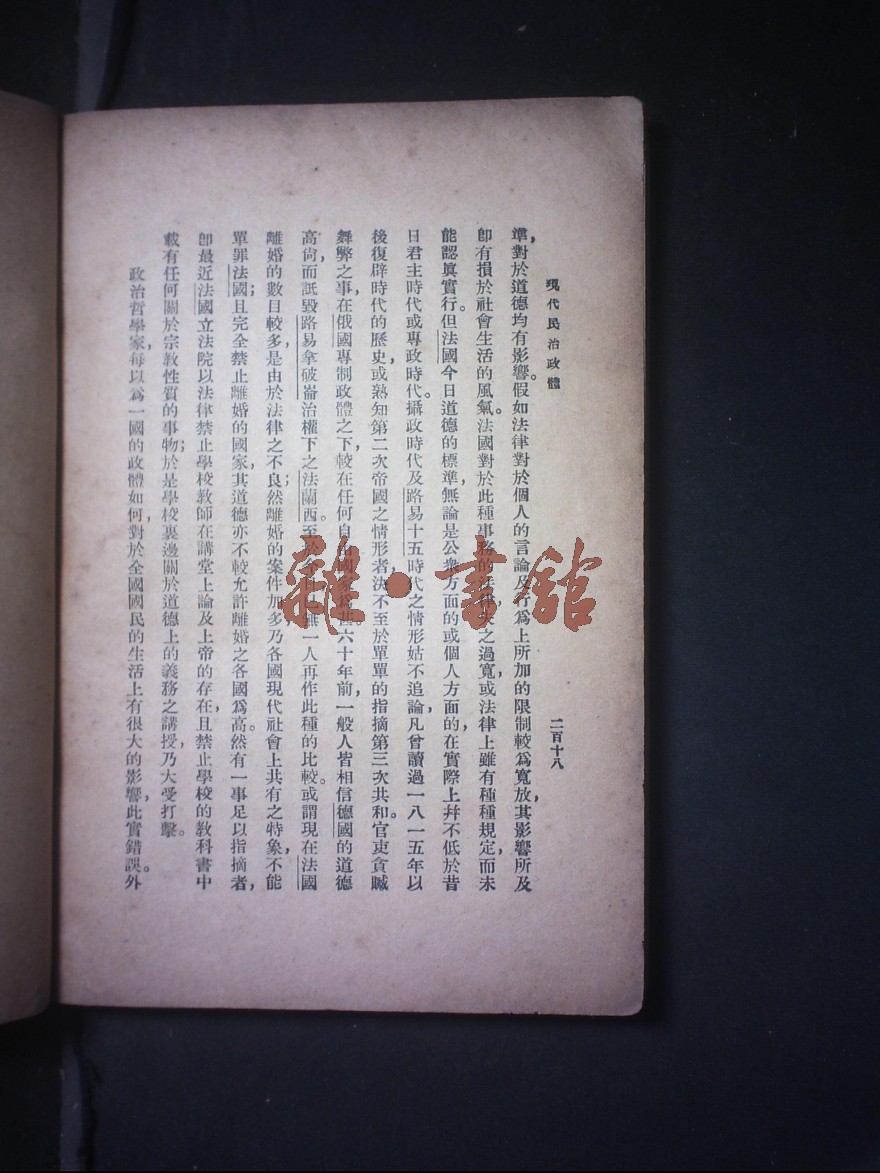 現代民治政體
二百十八
準，對於道德均有影響。假如法律對於個人的言論及行爲上所加的限制較爲寬放，其影響所及
卽有損於社會生活的風氣。法國對於此種事務的法律失之過寬，或法律上雖有種種規定，而未
能認眞實行。但法國今日道德的標準，無論是公衆方面的或個人方面的，在實際上幷不低於昔
日君主時代或專政時代。攝政時代及路易十五時代之情形姑不追論，凡曾讀過一八一五年以
後復辟時代的歷史，或熟知第二次帝國之情形者決不至於單單的指摘第三次共和。官吏貪贓
舞弊之事，在俄國專制政體之下，較在任何自由國家爲甚。六十年前，一般人皆相信德國的道德
高尙，而詆毀路易拿破崙治權下之法蘭西。至於今日已無一人再作此種的比較。或謂現在法國
離婚的數目較多，是由於法律之不良；然離婚的案件加多，乃各國現代社會上共有之特象，不能
單罪法國；且完全禁止離婚的國家，其道德亦不較允許離婚之各國爲高。然有一事足以指摘者，
卽最近法國立法院以法律禁止學校教師在講堂上論及上帝的存在，且禁止學校的教科書中
載有任何關於宗教性質的事物；於是學校裏邊關於道德上的義務之講授，乃大受打擊。
政治哲學家，每以爲一國的政體如何，對於全國國民的生活上有很大的影響，此實錯誤。外
雜·書舘